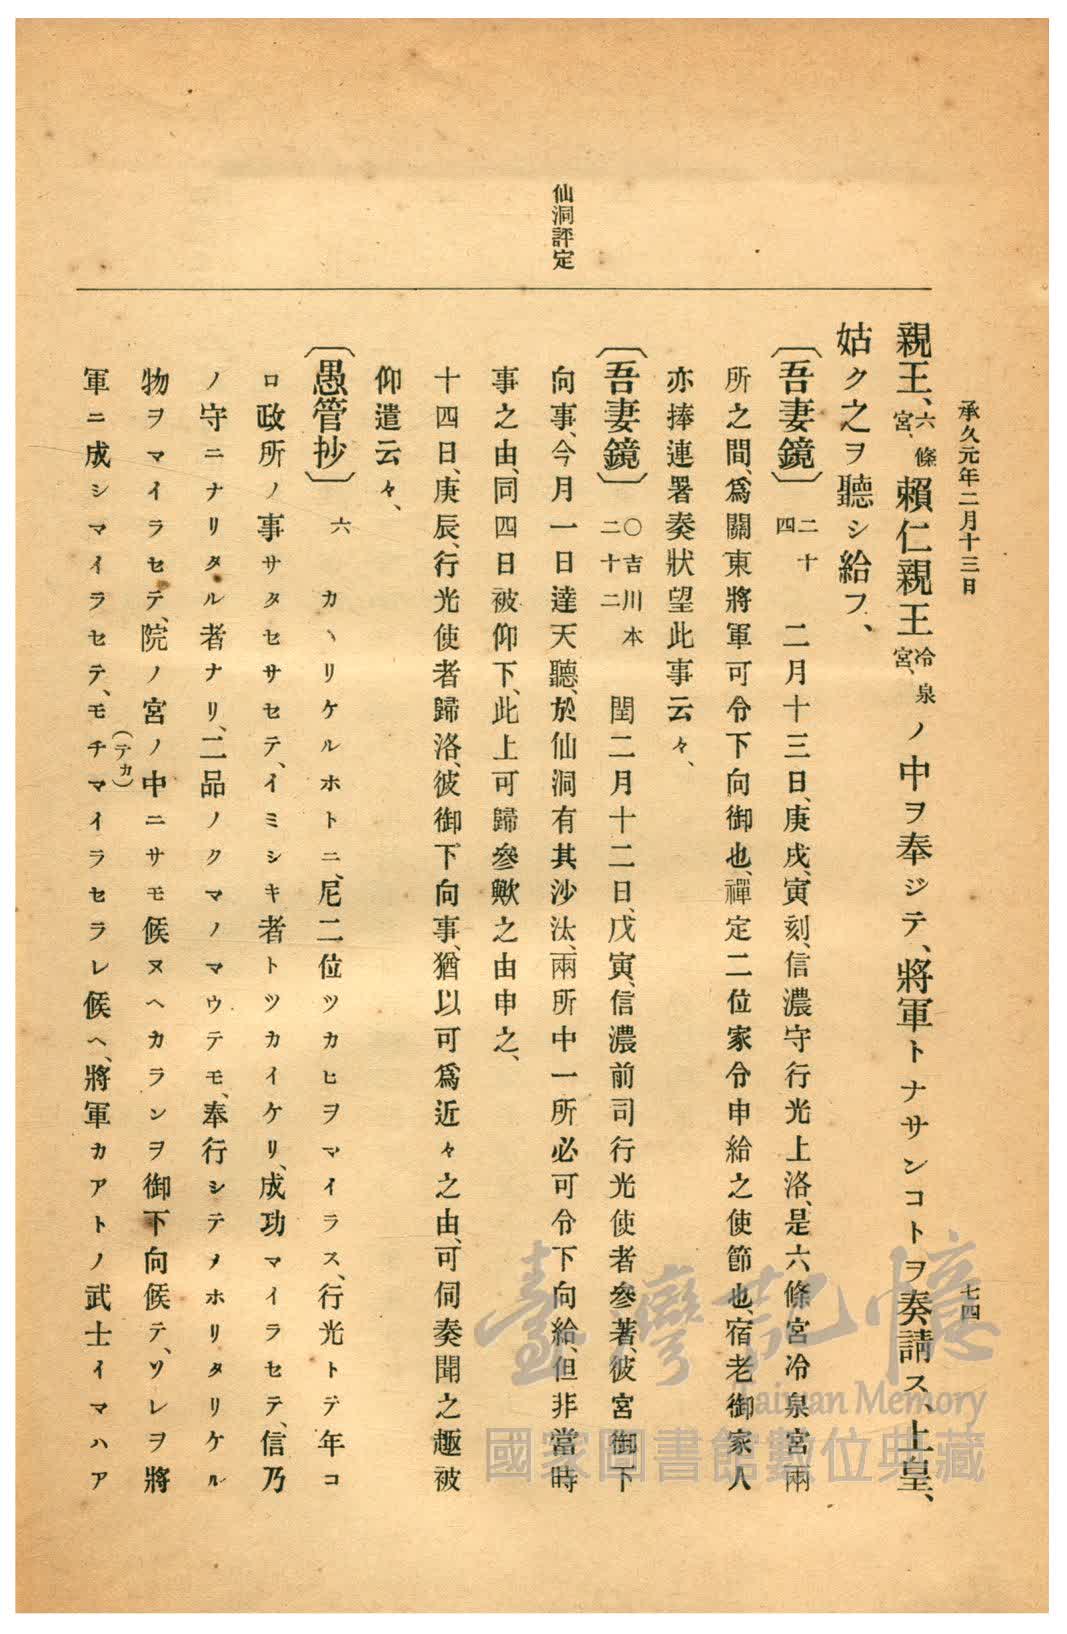 承久元年二月十三日
七四
仙洞評定
親王、六條宮、賴仁親王冷泉宮、ノ中ヲ奉ジテ、將軍トナサンコトヲ奏請ス、上皇、
姑ク之ヲ聽シ給フ、
〔吾妻鏡〕二十四 二月十三日、庚戌、寅刻、信濃守行光上洛、是六條宮冷泉宮兩
所之間、爲關東將軍可令下向御也、禪定二位家令申給之使節也、宿老御家人
亦捧連署奏狀望此事云々、
〔吾妻鏡〕○吉川本二十二 閏二月十二日、戊寅、信濃前司行光使者參著、彼宮御下
向事、今月一日達天聽、於仙洞有其沙汰、兩所中一所必可令下向給、但非當時
事之由、同四日被仰下、此上可歸參歟之由申之、
十四日、庚辰、行光使者歸洛、彼御下向事、猶以可爲近々之由、可伺奏聞之趣被
仰遣云々、
〔愚管抄〕六 カヽリケルホトニ、尼二位ツカヒヲマイラス、行光トテ年コ
ロ政所ノ事サタセサセテ、イミシキ者トツカイケリ、成功マイラセテ、信乃
ノ守ニナリタル者ナリ、二品ノクマノマウテモ、奉行シテノホリタリケル
物ヲマイラセテ、院ノ宮ノ中ニサモ候ヌヘカランヲ御下向候テ、ソレヲ將
軍ニ成シマイラセテ、モチ（テカ）マイラセラレ候ヘ、將軍カアトノ武士イマハア
臺灣記憶
Taiwan Memory
國家圖書館數位典藏